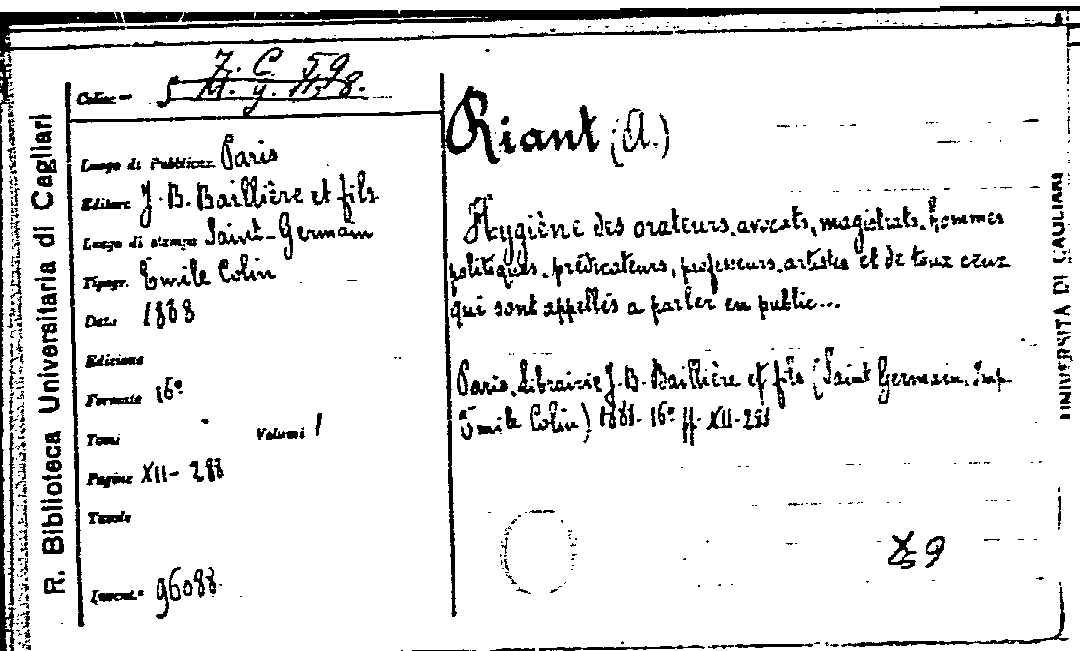 R. Biblioteca Universitaria di Cagliari
Colloc.
7. C 59
Luogo di Pubblicaz. Paris
Editore J. B. Baillière et fils
Luogo di stampa Saint-Germain
Tipogr. Emile Colin
Data 1888
Edizione
Formato 16º
Tomi
Volumi 1
Pagine XII - 288
Tavole
Invent.º 96088
Riant (A.)
Hygiène des orateurs, avocats, magistrats, hommes
politiques, prédicateurs, professeurs, artistes et de toux ceux
qui sont appellés a parler en public...
Paris, Librairie J. B. Baillière et fils (Saint Germain, Imp.
Emile Colin) 1888. 16º XII-288
UNIVERSITÀ DI CAGLIARI